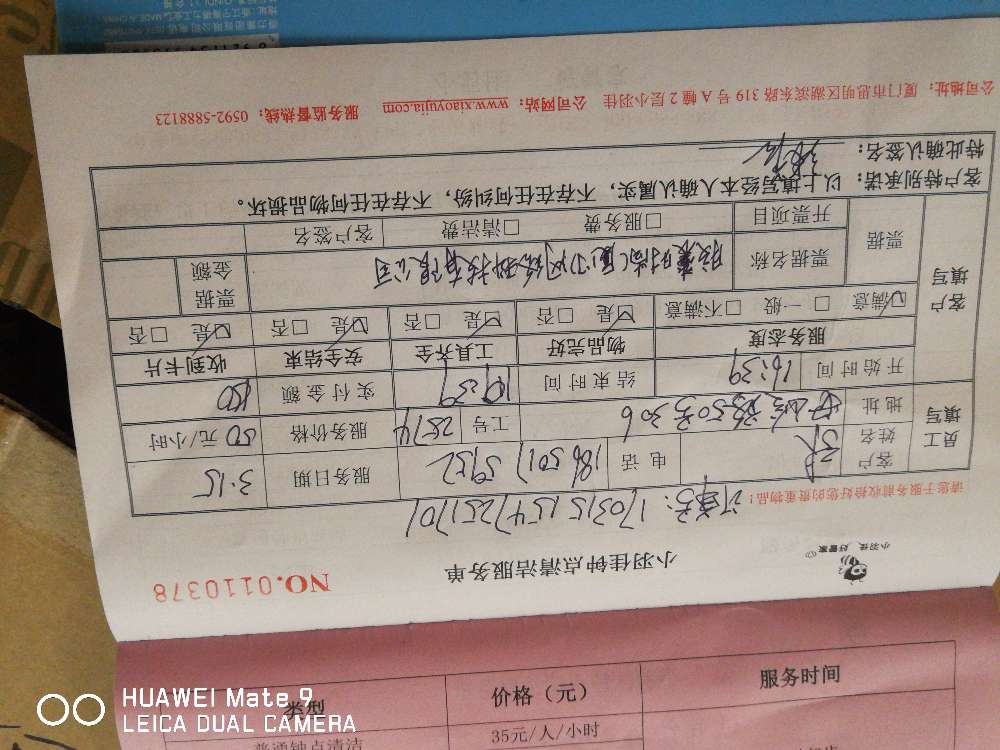 小羽佳 好管家
小羽佳钟点清洁服务单
NO.0110378
请您于服务前收拾好您的贵重物品!
订单号: 170315154725170
员工填写
客户姓名
电话
服务日期 3.15
地址
50号306
工号 2574
服务价格 50元/小时
开始时间 16:39
结束时间
实付金额
客户填写
服务态度 物品完好 工具齐全 安全结束 收到卡片
满意 一般 不满意 是 否 是 否 是 否 是 否
票据
票据名称
(厦门)网络科技有限公司
票据金额
开票项目 服务费 清洁费
客户签名
客户特别承诺:以上填写经本人确认属实,不存在任何纠纷,不存在任何物品损坏。
特此确认签名:
公司地址:厦门市思明区湖滨东路319号A幢2层小羽佳 公司网站:www.xiaoyujia.com 服务监督热线:0592-5888123
类型 价格(元) 服务时间
普通钟点清洁 35元/人/小时
HUAWEI Mate 9
LEICA DUAL CAMERA